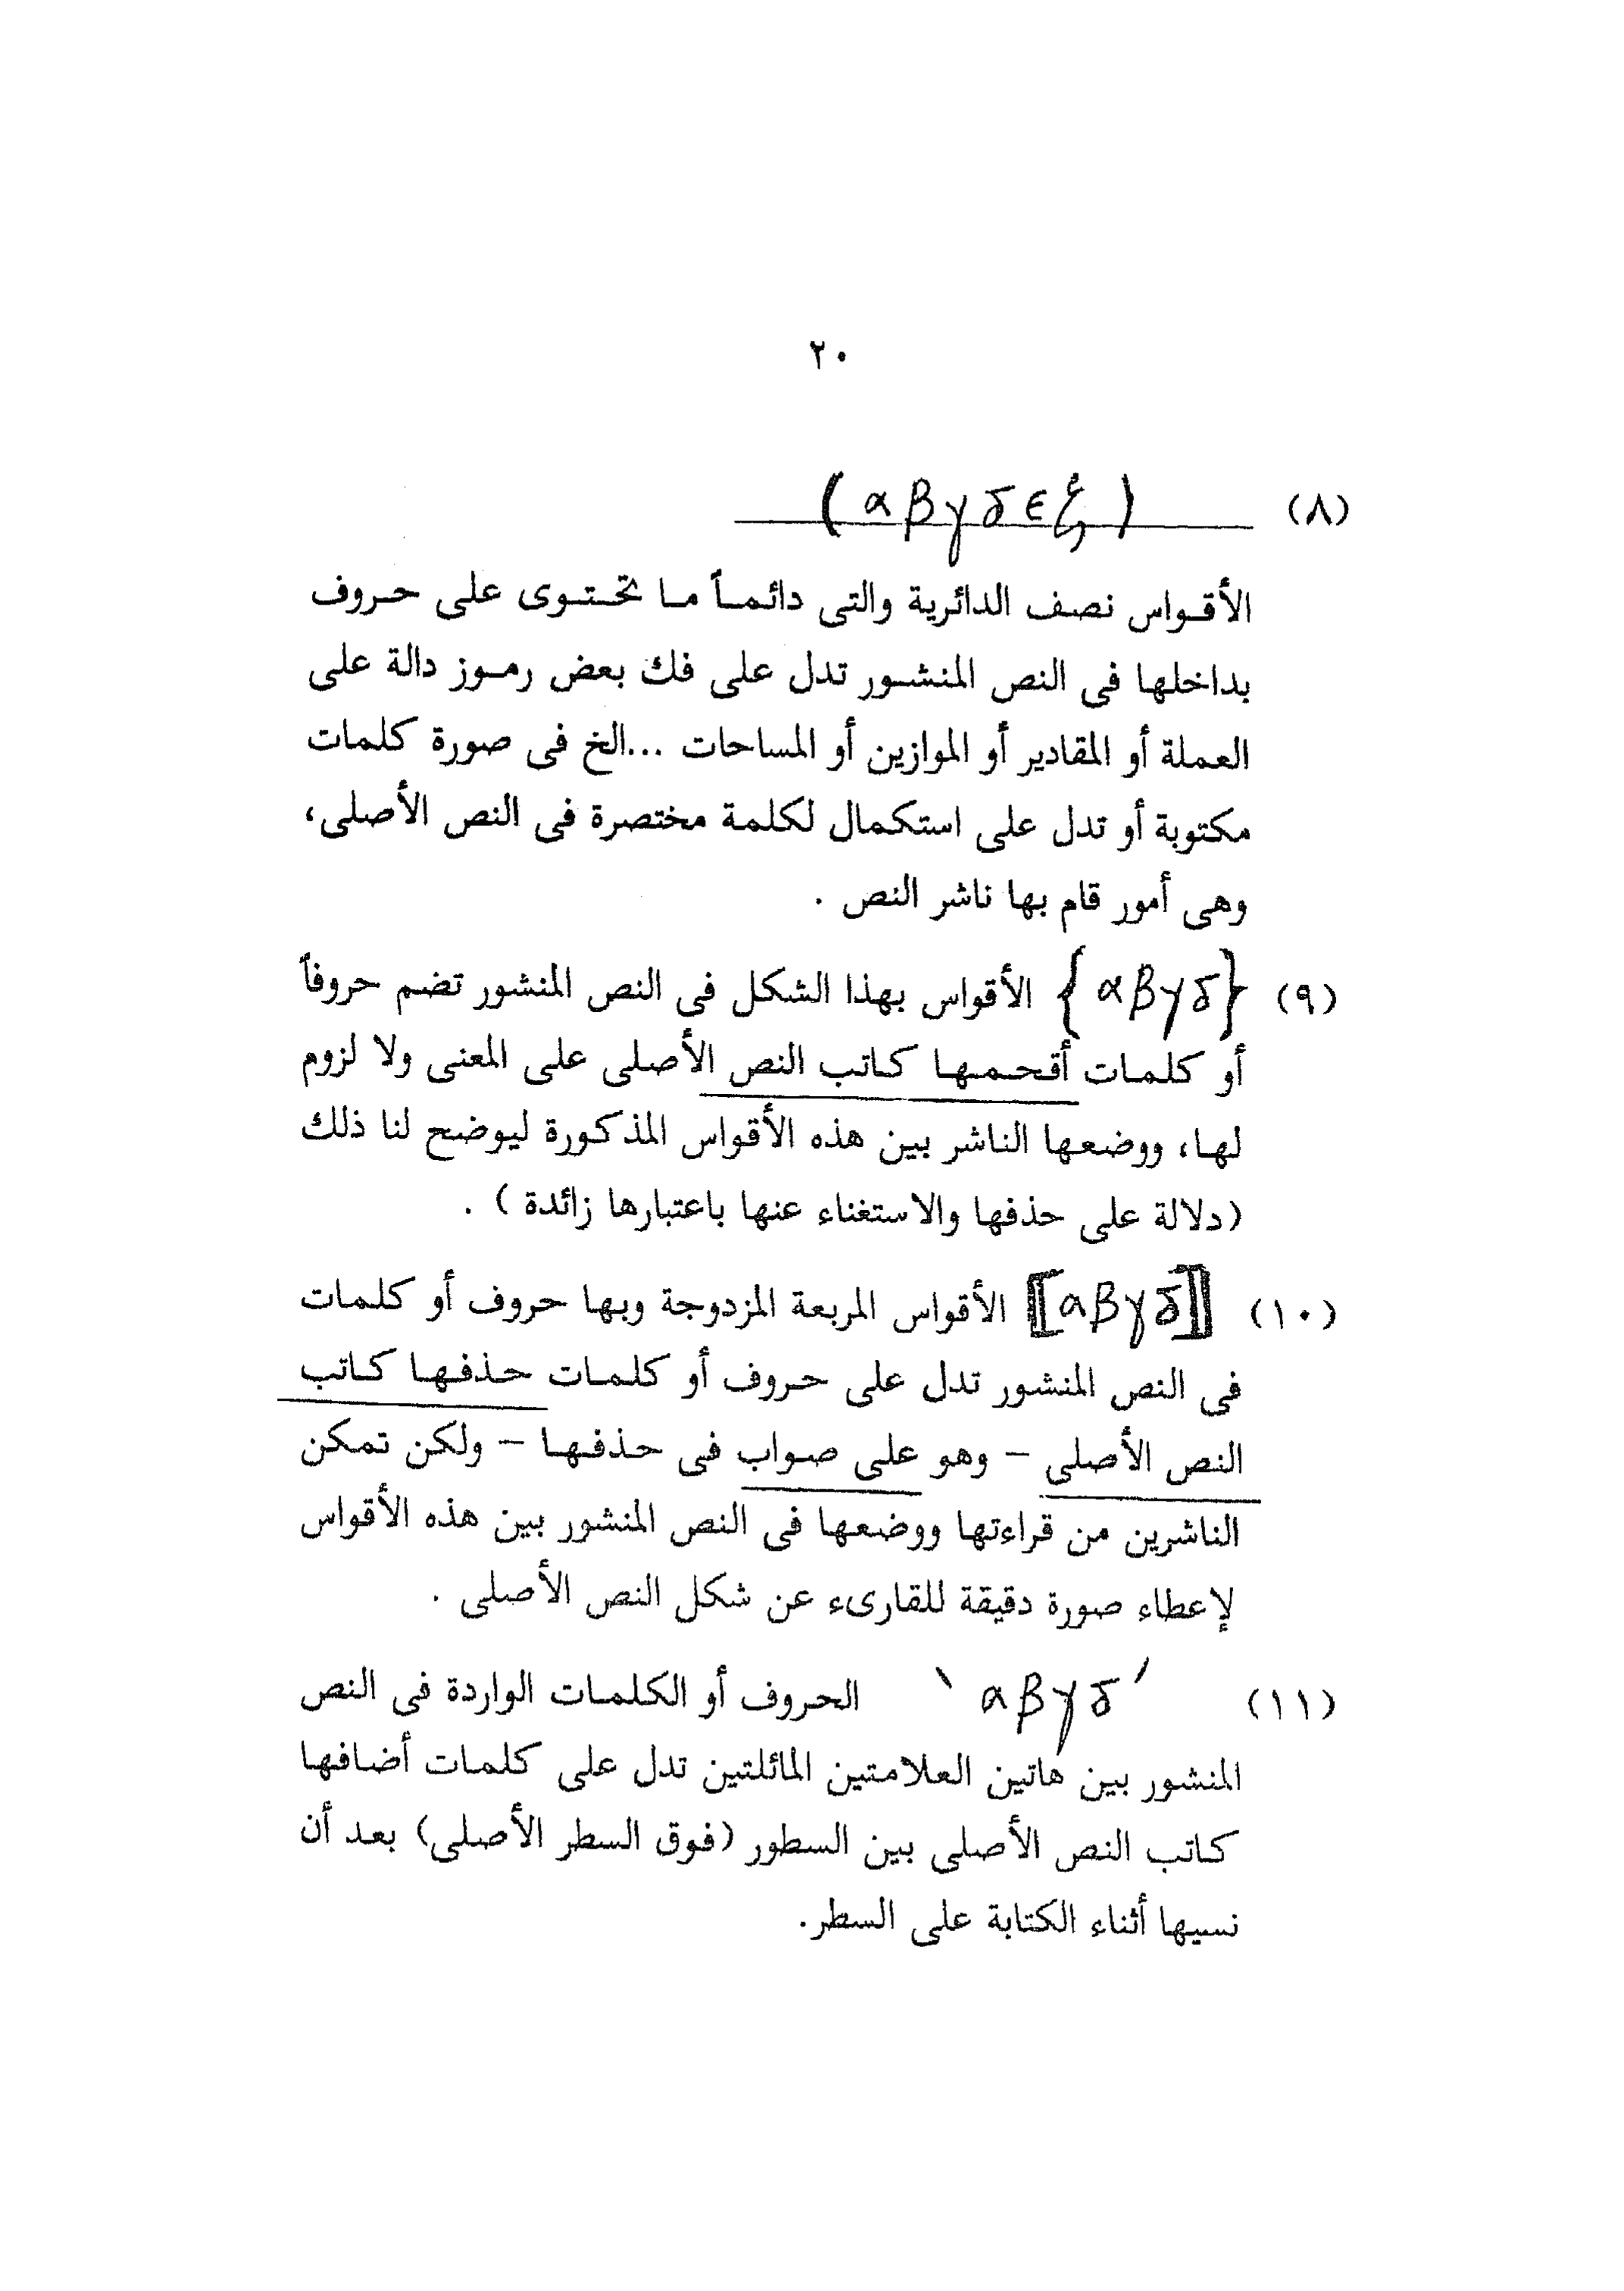 ٢٠
(٨) ( α β γ δ ε ζ )
الأقواس نصف الدائرية والتى دائماً ما تحتوى على حروف
بداخلها فى النص المنشور تدل على فك بعض رموز دالة على
العملة أو المقادير أو الموازين أو المساحات ...الخ فى صورة كلمات
مكتوبة أو تدل على استكمال لكلمة مختصرة فى النص الأصلى،
وهى أمور قام بها ناشر النص .
(٩) { α β γ δ } الأقواس بهذا الشكل فى النص المنشور تضم حروفاً
أو كلمات أقحمها كاتب النص الأصلى على المعنى ولا لزوم
لها، ووضعها الناشر بين هذه الأقواس المذكورة ليوضح لنا ذلك
(دلالة على حذفها والاستغناء عنها باعتبارها زائدة ) .
(١٠) [[ α β γ δ ]] الأقواس المربعة المزدوجة وبها حروف أو كلمات
فى النص المنشور تدل على حروف أو كلمات حذفها كاتب
النص الأصلى – وهو على صواب فى حذفها – ولكن تمكن
الناشرين من قراءتها ووضعها فى النص المنشور بين هذه الأقواس
لإعطاء صورة دقيقة للقارىء عن شكل النص الأصلى .
(١١) ` α β γ δ ´ الحروف أو الكلمات الواردة فى النص
المنشور بين هاتين العلامتين المائلتين تدل على كلمات أضافها
كاتب النص الأصلى بين السطور (فوق السطر الأصلى) بعد أن
نسيها أثناء الكتابة على السطر.